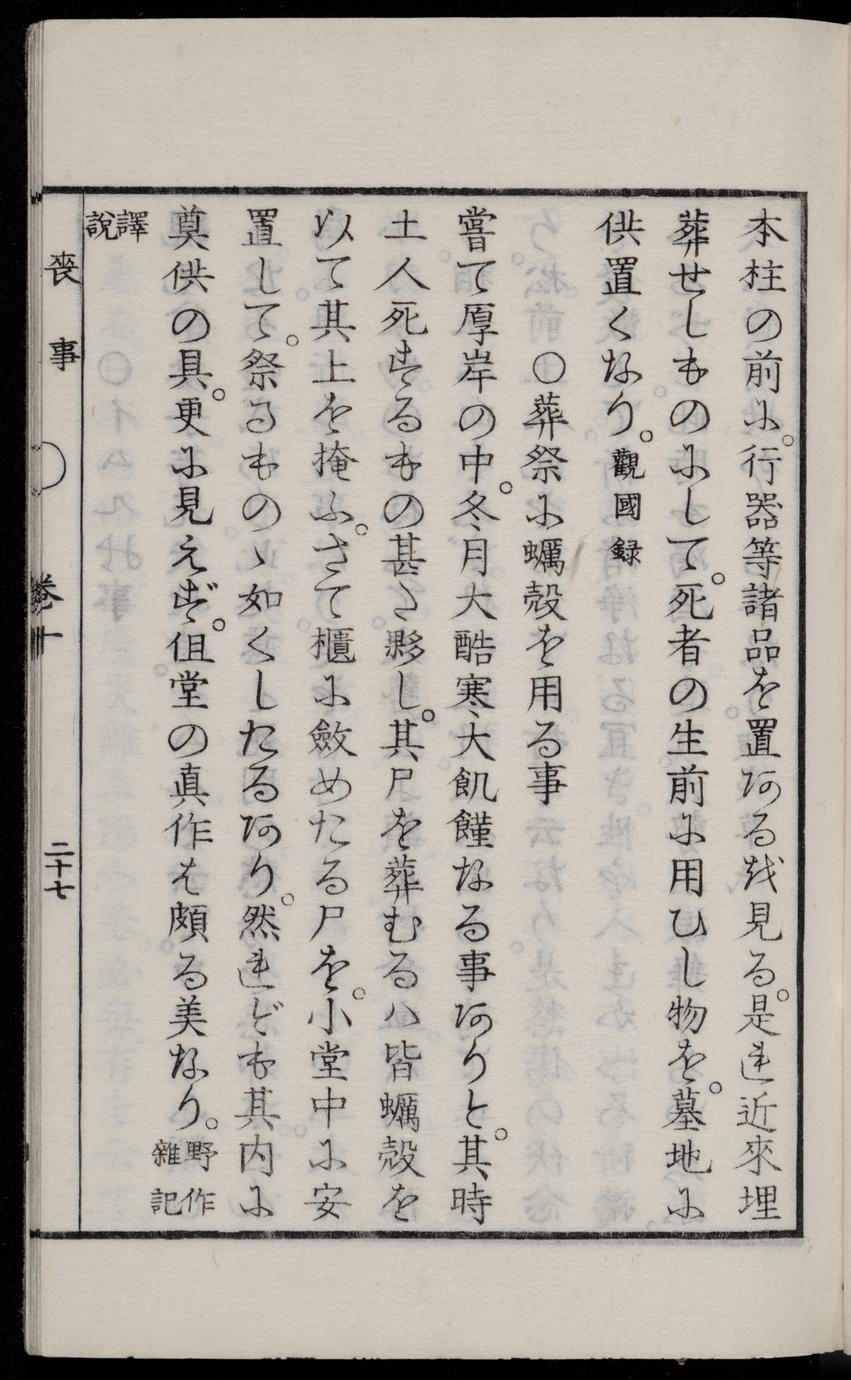 本柱の前に。行器等諸品を置ある哉見る。是連近來埋
葬せしものにして。死者の生前に用ひし物を。墓地に
供置くなり。觀國録
〇葬祭に蠣殻を用る事
嘗て厚岸の中。冬月大酷寒、大飢饉なる事ありと。其時
土人死するもの甚た夥し。其尸を葬むるハ皆蠣殻を
以て其上を掩ふ。さて櫃に斂めたる尸を。小堂中に安
置して。祭るものゝ如くしたるあり。然連ども其内に
奠供の具。更に見えず。但堂の真作は頗る美なり。野作
雜記
譯
說
喪事
卷十
二十七